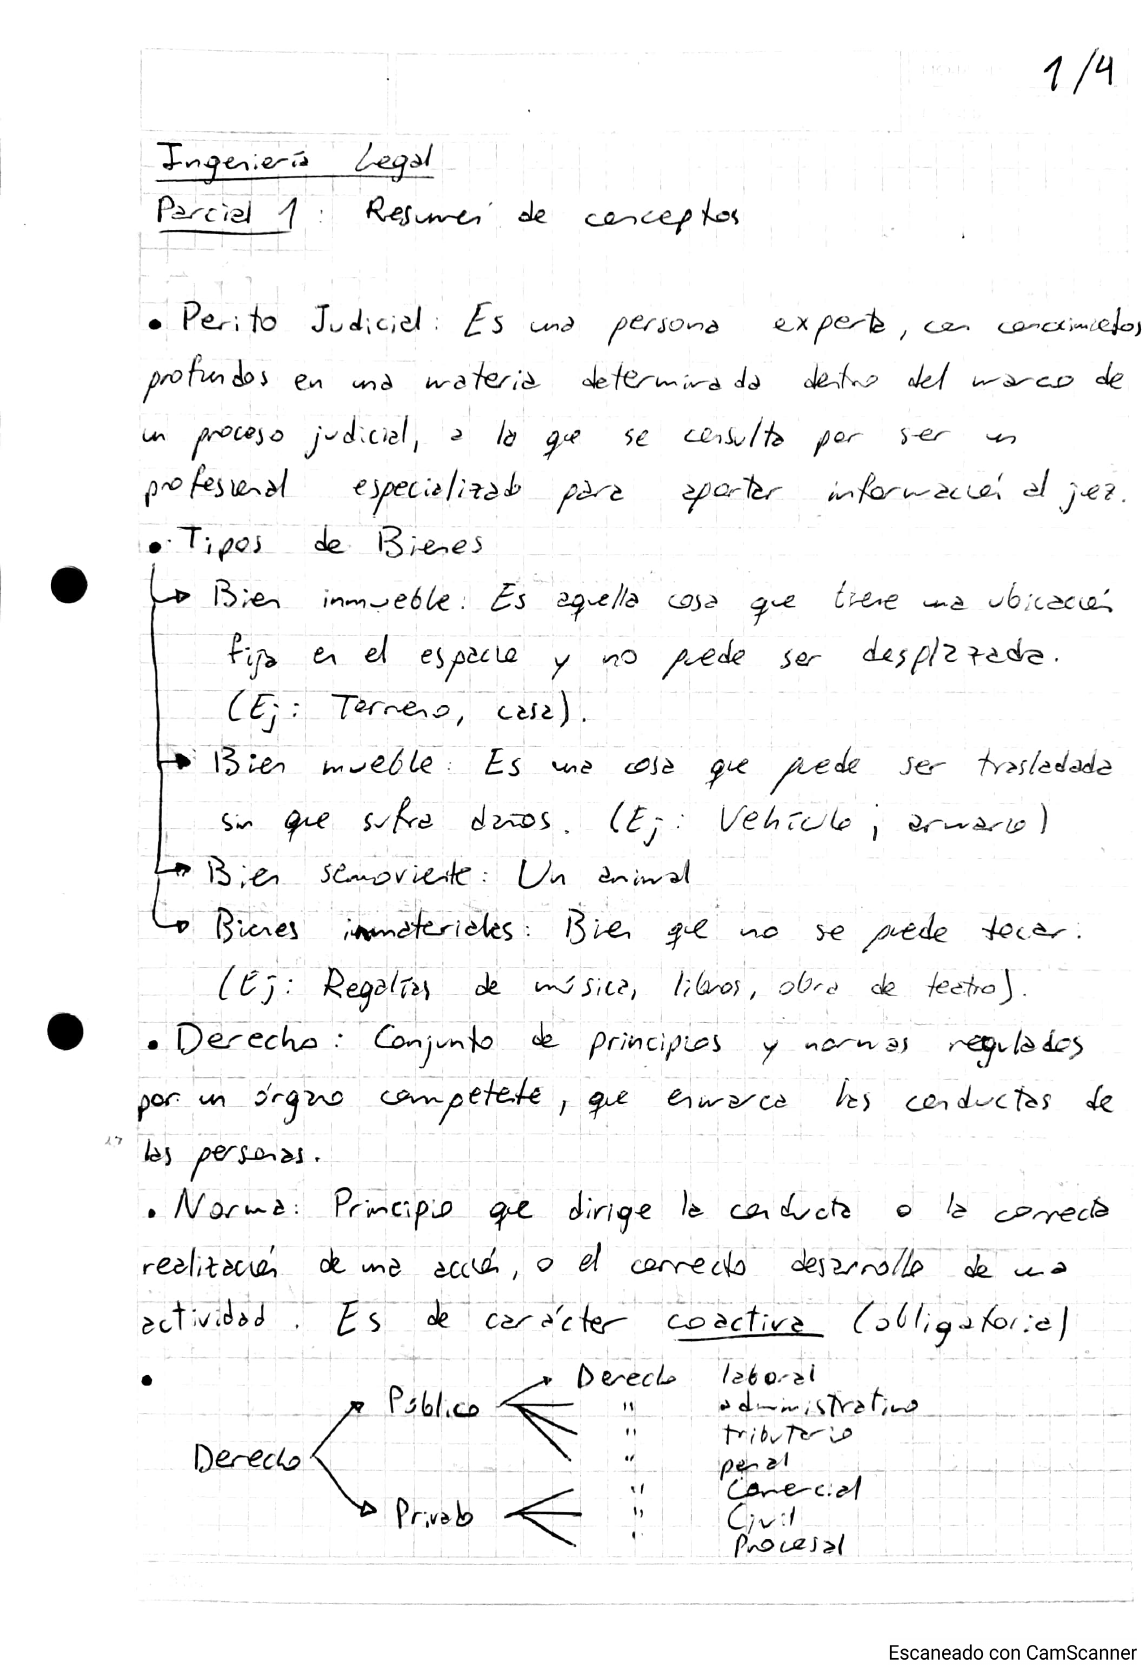 1/4
Ingeniería Legal
Parcial 1 : Resumen de conceptos
• Perito Judicial: Es una persona experta, con conocimientos
profundos en una materia determinada dentro del marco de
un proceso judicial, a la que se consulta por ser un
profesional especializado para aportar información al juez.
• Tipos de Bienes
Bien inmueble: Es aquella cosa que tiene una ubicación
fija en el espacio y no puede ser desplazada.
(Ej: Terreno, casa).
Bien mueble: Es una cosa que puede ser trasladada
sin que sufra daños. (Ej: Vehículo; armario)
Bien semoviente: Un animal
Bienes inmateriales: Bien que no se puede tocar.
(Ej: Regalías de música, libros, obra de teatro).
• Derecho: Conjunto de principios y normas regulados
por un órgano competente, que enmarca las conductas de
las personas.
• Norma: Principio que dirige la conducta o la correcta
realización de una acción, o el correcto desarrollo de una
actividad. Es de carácter coactiva (obligatoria)
•
Derecho
Público
Derecho laboral
" administrativo
" tributario
" penal
Privado
" Comercial
" Civil
" Procesal
Escaneado con CamScanner